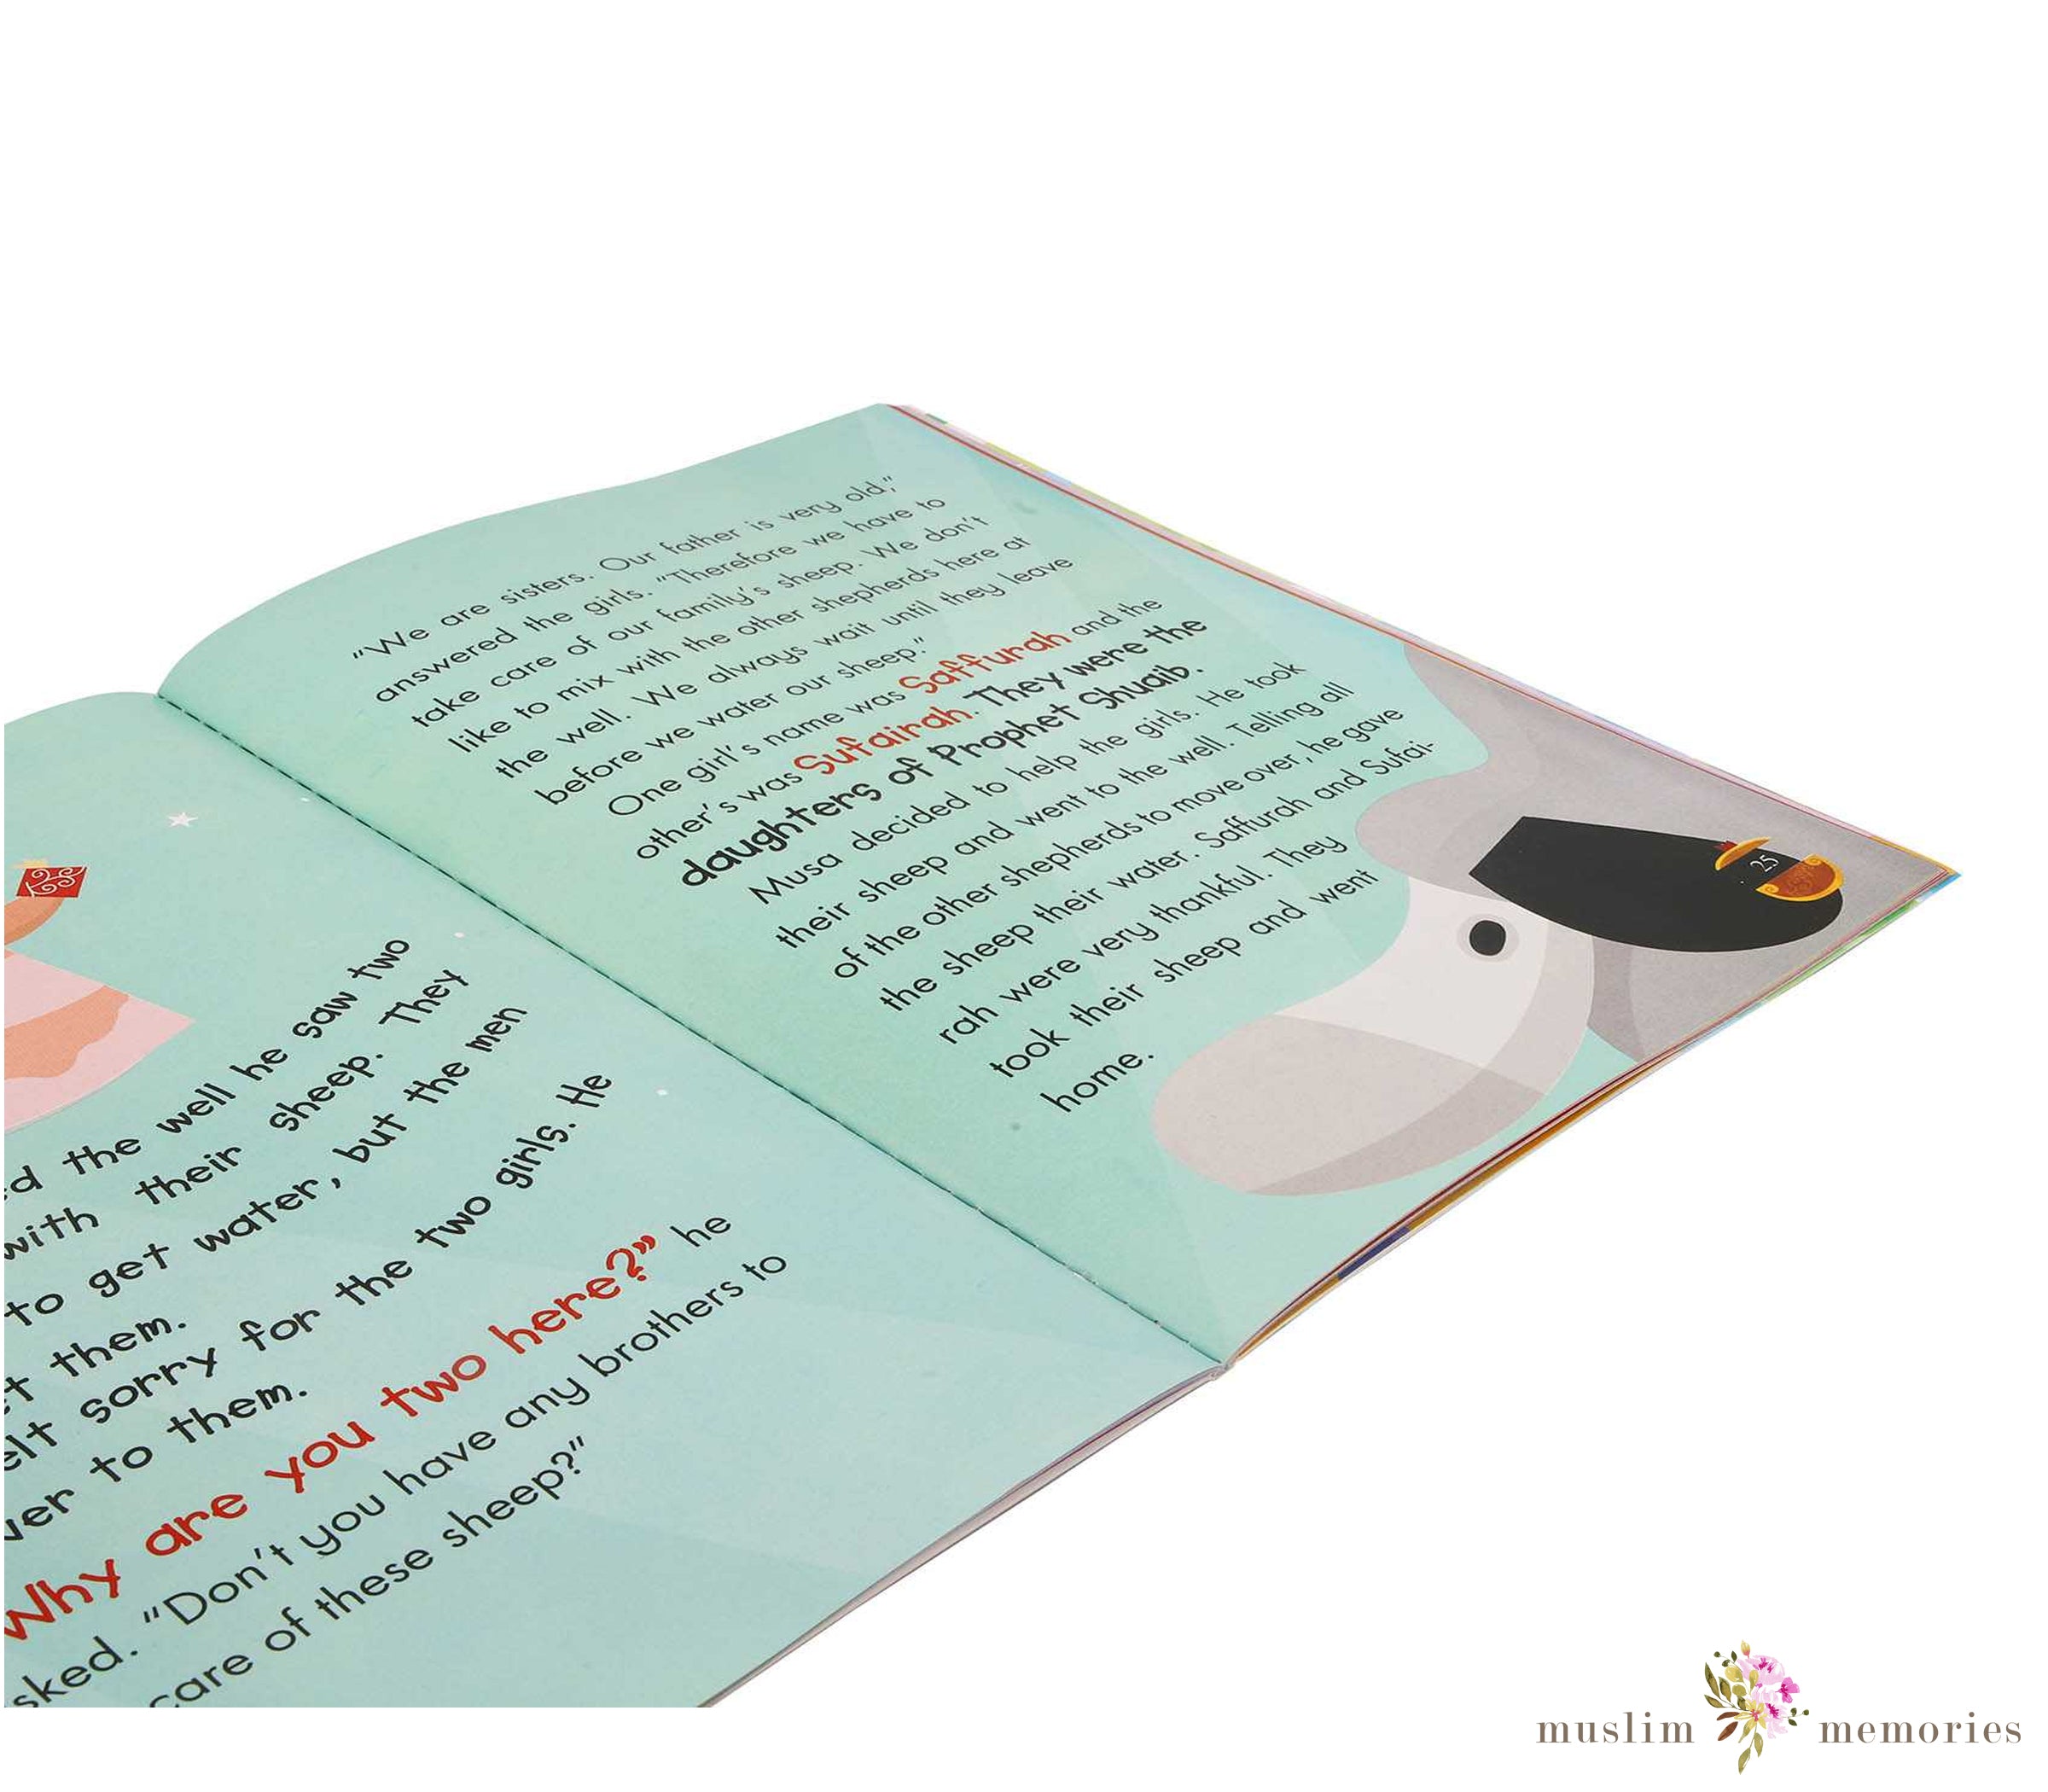 the well he saw two
with their sheep. They
to get water, but the men
them.
sorry for the two girls. He
to them.
Why are you two here?” he
“Don’t you have any brothers to
care of these sheep?”
“We are sisters. Our father is very old,”
answered the girls. “Therefore we have to
take care of our family’s sheep. We don’t
like to mix with the other shepherds here at
the well. We always wait until they leave
before we water our sheep.”
One girl’s name was Saffurah and the
other’s was Sufairah. They were the
daughters of Prophet Shuaib.
Musa decided to help the girls. He took
their sheep and went to the well. Telling all
of the other shepherds to move over, he gave
the sheep their water. Saffurah and Sufai-
rah were very thankful. They
took their sheep and went
home.
25
muslim memories